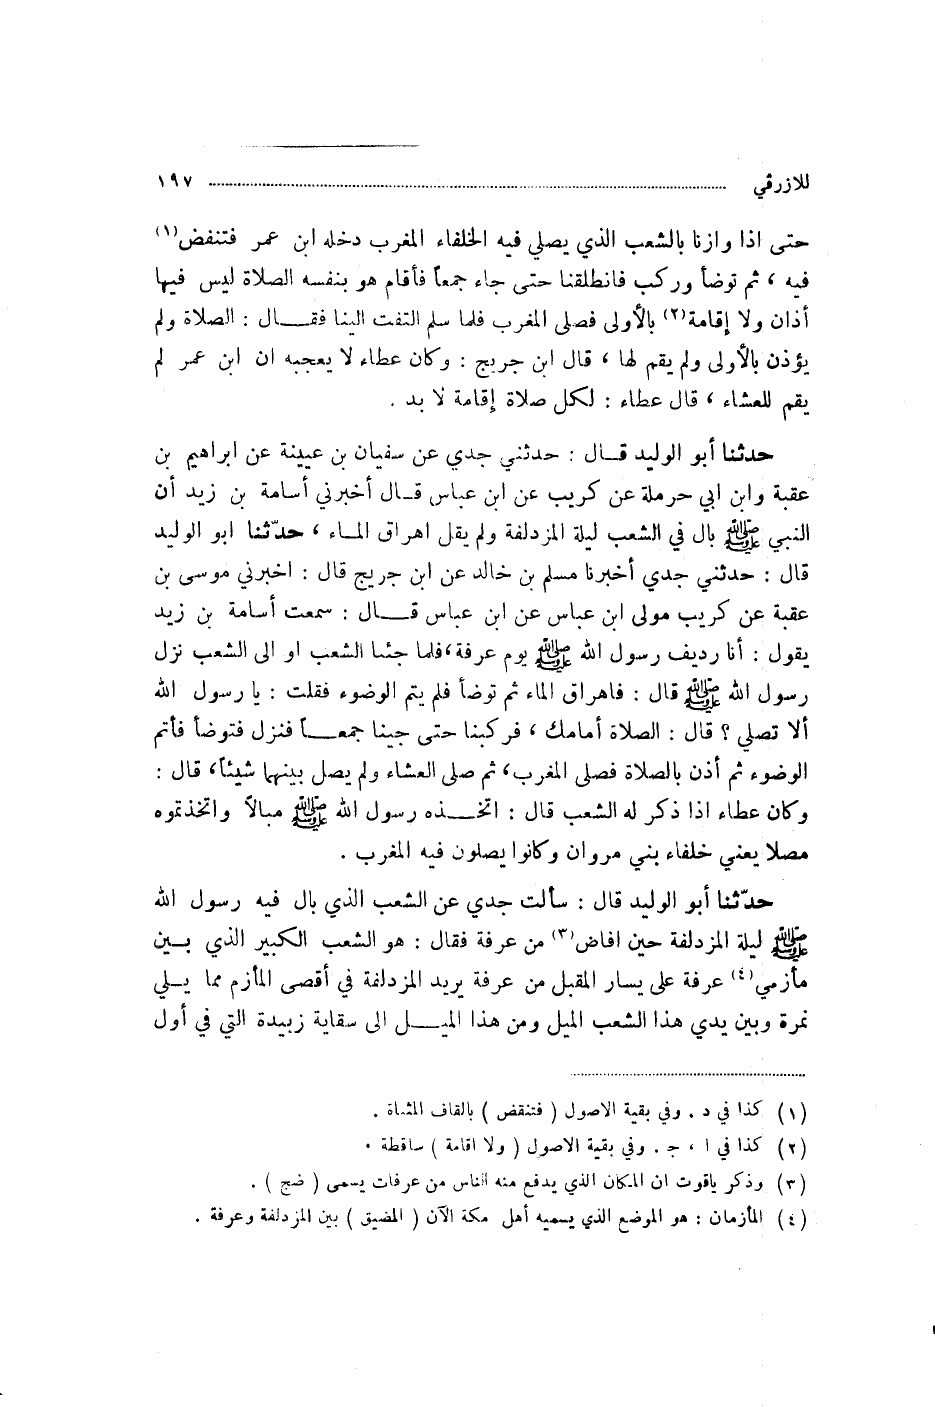 للازرقي ١٩٧
حتى اذا وازنا بالشعب الذي يصلي فيه الخلفاء المغرب دخله ابن عمر فتنفض(١)
فيه ، ثم توضأ وركب فانطلقنا حتى جاء جمعاً فأقام هو بنفسه الصلاة ليس فيها
أذان ولا إقامة(٢) بالأولى فصلى المغرب فلما سلم التفت الينا فقال : الصلاة ولم
يؤذن بالأولى ولم يقم لها ، قال ابن جريج : وكان عطاء لا يعجبه ان ابن عمر لم
يقم للعشاء ، قال عطاء : لكل صلاة إقامة لا بد .
حدثنا أبو الوليد قال : حدثني جدي عن سفيان بن عيينة عن ابراهيم بن
عقبة وابن ابي حرملة عن كريب عن ابن عباس قال أخبرني أسامة بن زيد أن
النبي ﷺ بال في الشعب ليلة المزدلفة ولم يقل اهراق الماء ، حدّثنا ابو الوليد
قال : حدثني جدي أخبرنا مسلم بن خالد عن ابن جريج قال : اخبرني موسى بن
عقبة عن كريب مولى ابن عباس عن ابن عباس قال : سمعت أسامة بن زيد
يقول : أنا رديف رسول الله ﷺ يوم عرفة ، فلما جئنا الشعب او الى الشعب نزل
رسول الله ﷺ قال : فاهراق الماء ثم توضأ فلم يتم الوضوء فقلت : يا رسول الله
ألا تصلي ؟ قال : الصلاة أمامك ، فركبنا حتى جينا جمعاً فنزل فتوضأ فأتم
الوضوء ثم أذن بالصلاة فصلى المغرب ، ثم صلى العشاء ولم يصل بينهما شيئاً ، قال :
وكان عطاء اذا ذكر له الشعب قال : اتخذه رسول الله ﷺ مبالاً واتخذتموه
مصلا يعني خلفاء بني مروان وكانوا يصلون فيه المغرب .
حدّثنا أبو الوليد قال : سألت جدي عن الشعب الذي بال فيه رسول الله
ﷺ ليلة المزدلفة حين افاض(٣) من عرفة فقال : هو الشعب الكبير الذي بين
مأزمي(٤) عرفة على يسار المقبل من عرفة يريد المزدلفة في أقصى المأزم مما يلي
نمرة وبين يدي هذا الشعب الميل ومن هذا الميل الى سقاية زبيدة التي في أول
(١) كذا في د . وفي بقية الاصول ( فتنقض ) بالقاف المثناة .
(٢) كذا في ا ، ج . وفي بقية الاصول ( ولا اقامة ) ساقطة .
(٣) وذكر ياقوت ان المكان الذي يدفع منه الناس من عرفات يسمى ( ضج ) .
(٤) المأزمان : هو الموضع الذي يسميه أهل مكة الآن ( المضيق ) بين المزدلفة وعرفة .